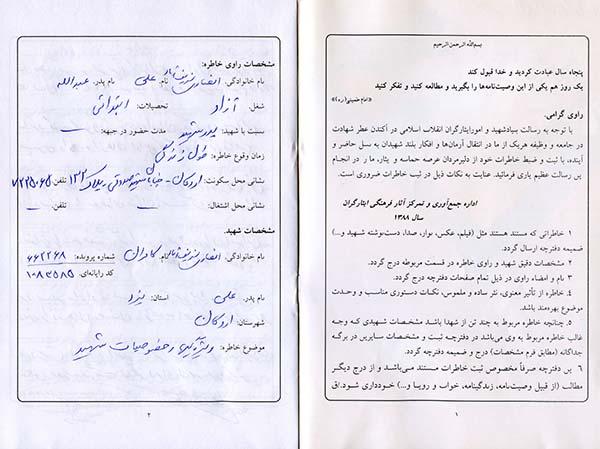 بسم‌الله الرحمن الرحیم
پنجاه سال عبادت کردید و خدا قبول کند
یک روز هم یکی از این وصیت‌نامه‌ها را بگیرید و مطالعه کنید و تفکر کنید
«امام خمینی(ره)»
راوی گرامی،
با توجه به رسالت بنیادشهید و امورایثارگران انقلاب اسلامی در آکندن عطر شهادت
در جامعه و وظیفه هریک از ما در انتقال آرمان‌ها و افکار بلند شهیدان به نسل حاضر و
آینده، با ثبت و ضبط خاطرات خود از دلیرمردان عرصه حماسه و ایثار، ما را در انجام
این رسالت عظیم یاری فرمائید. عنایت به نکات ذیل در ثبت خاطرات ضروری است.
اداره جمع‌آوری و تمرکز آثار فرهنگی ایثارگران
سال ۱۳۸۸
۱ خاطراتی که مستند هستند مثل (فیلم، عکس، نوار، صدا، دست‌نوشته شهید و...)
ضمیمه دفترچه ارسال گردد.
۲ مشخصات دقیق شهید و راوی خاطره در قسمت مربوطه درج گردد.
۳ نام و امضاء راوی در ذیل تمام صفحات دفترچه درج گردد.
۴ خاطره از تأثیر معنوی، نثر ساده و ملموس، نکات دستوری مناسب و وحدت
موضوع بهره‌مند باشد.
۵ چنانچه خاطره مربوط به چند تن از شهدا باشد مشخصات شهیدی که وجه
غالب خاطره مربوط به وی می‌باشد در دفترچه ثبت و مشخصات سایرین در برگه
جداگانه (مطابق فرم مشخصات) درج و ضمیمه دفترچه گردد.
۶ این دفترچه صرفاً مخصوص ثبت خاطرات مستند می‌باشد و از درج دیگر
مطالب (از قبیل وصیت‌نامه، زندگینامه، خواب و رویا و...) خودداری شود./ق
۱
مشخصات راوی خاطره:
نام خانوادگی: انصاری نام: علی نام پدر: عبدالله
شغل: آزاد تحصیلات: ابتدائی
نسبت با شهید: پدر شهید مدت حضور در جبهه: ــ
زمان وقوع خاطره: طول زندگی
نشانی محل سکونت: اردکان - خیابان شهید صدوقی - پلاک ۱۳۲ تلفن: ۷۲۲۵۰۶۵
نشانی محل اشتغال: ــ تلفن: ــ
مشخصات شهید:
نام خانوادگی: انصاری نام: کامران شماره پرونده: ۶۶۲۲۶۸
کد رایانه‌ای: ۱۰۸۳۵۸۵
نام پدر: علی استان: یزد
شهرستان: اردکان
موضوع خاطره: ویژگیها و خصوصیات شهید
۲